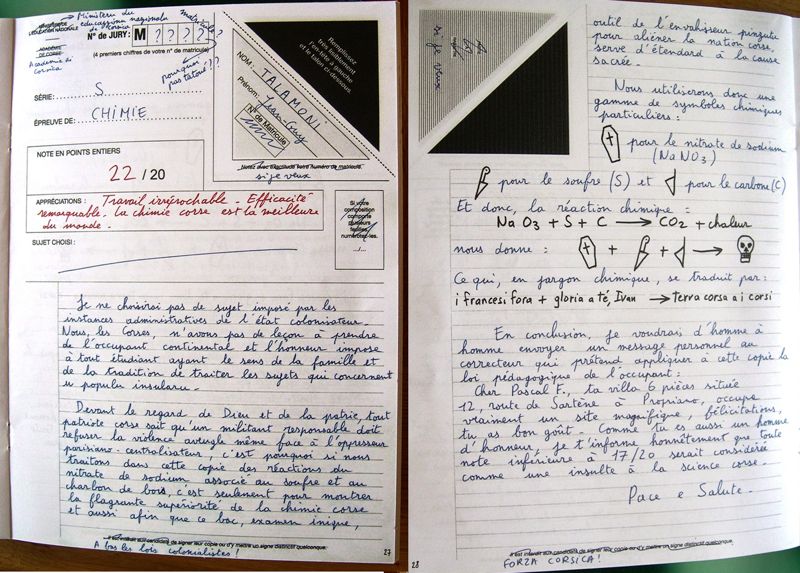 Ministeru di
educazzioni naziunali
di Corsica
L'EDUCATION NATIONALE
ACADEMIE
DE CORSE
Academia di
Corsica
N° de JURY: M ? ? ? ?
matricule?
(4 premiers chiffres de votre n° de matricule)
pourquoi
pas tatoué??
SÉRIE: S
ÉPREUVE DE: CHIMIE
NOM: TALAMONI
Prénom: Jean-Guy
N° de Matricule
Remplissez
très lisiblement
l'en-tête à gauche
et le talon ci-dessous.
Notez avec exactitude votre numéro de matricule.
si je veux
NOTE EN POINTS ENTIERS
22 / 20
APPRÉCIATIONS: Travail irréprochable - Efficacité
remarquable. La chimie corse est la meilleure
du monde.
Si votre
composition
comporte
plusieurs
feuilles,
numérotez-les.
.../...
SUJET CHOISI:
Je ne choisirai pas de sujet imposé par les
instances administratives de l'état colonisateur.
Nous, les Corses, n'avons pas de leçon à prendre
de l'occupant continental et l'honneur impose
à tout étudiant ayant le sens de la famille et
de la tradition de traiter les sujets qui concernent
u populu insularu.
Devant le regard de Dieu et de la patrie, tout
patriote corse sait qu'un militant responsable doit
refuser la violence aveugle même face à l'oppresseur
parisiano-centralisateur; c'est pourquoi si nous
traitons dans cette copie des réactions du
nitrate de sodium associé au soufre et au
charbon de bois, c'est seulement pour montrer
la flagrante supériorité de la chimie corse
et aussi afin que ce bac, examen inique,
Il est interdit aux candidats de signer leur copie ou d'y mettre un signe distinctif quelconque.
A bas les lois colonialistes!
27
si je veux
outil de l'envahisseur pinzuta
pour aliéner la nation corse,
serve d'étendard à la cause
sacrée.
Nous utiliserons donc une
gamme de symboles chimiques
particuliers:
pour le nitrate de sodium
(NaNO3)
pour le soufre (S) et pour le carbone (C)
Et donc, la réaction chimique:
Na O3 + S + C → CO2 + chaleur
nous donne: + + →
Ce qui, en jargon chimique, se traduit par:
i francesi fora + gloria a té, Ivan → terra corsa a i corsi
En conclusion, je voudrais d'homme à
homme envoyer un message personnel au
correcteur qui prétend appliquer à cette copie la
loi pédagogique de l'occupant:
Cher Pascal F., ta villa 6 pièces située
12, route de Sartène à Propriano, occupe
vraiment un site magnifique, félicitations,
tu as bon goût. Comme tu es aussi un homme
d'honneur, je t'informe honnêtement que toute
note inférieure à 17/20 serait considérée
comme une insulte à la science corse.
Pace e Salute.
Il est interdit aux candidats de signer leur copie ou d'y mettre un signe distinctif quelconque.
FORZA CORSICA!
28